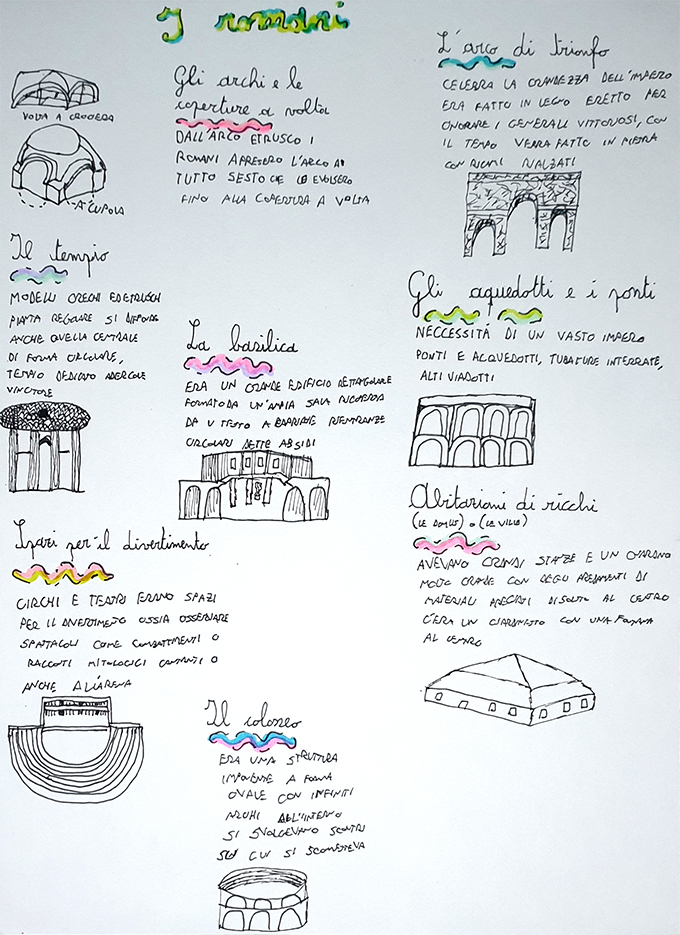 I romani
VOLTA A CROCIERA
A CUPOLA
Gli archi e le
coperture a volta
DALL'ARCO ETRUSCO I
ROMANI APPRESERO L'ARCO A
TUTTO SESTO CHE LO EVOLSERO
FINO ALLA COPERTURA A VOLTA
L'arco di trionfo
CELEBRA LA GRANDEZZA DELL'IMPERO
ERA FATTO IN LEGNO ERETTO PER
ONORARE I GENERALI VITTORIOSI, CON
IL TEMPO VERRÀ FATTO IN PIETRA
CON RICAMI RIALZATI
Il tempio
MODELLI GRECHI ED ETRUSCHI
PIANTA REGOLARE SI DIFFONDE
ANCHE QUELLA CENTRALE
DI FORMA CIRCOLARE,
TEMPIO DEDICATO AD ERCOLE
VINCITORE
La basilica
ERA UN GRANDE EDIFICIO RETTANGOLARE
FORMATO DA UN'AMPIA SALA RICOPERTA
DA TETTO A RIENTRANZE
CIRCOLARI DETTE ABSIDI
Gli aquedotti e i ponti
NECCESSITÁ DI UN VASTO IMPERO
PONTI E ACQUEDOTTI, TUBATURE INTERRATE,
ALTI VIADOTTI
Spazi per il divertimento
CIRCHI E TEATRI ERANO SPAZI
PER IL DIVERTIMENTO OSSIA OSSERVARE
SPETTACOLI COME COMBATTIMENTI O
RACCONTI MITOLOGICI CANTANTI O
ANCHE ALL'ARENA
Abitazioni di ricchi
(LE DOMUS) o (LA VILLA)
AVEVANO GRANDI STANZE E UN GIARDINO
MOLTO GRANDE CON DEGLI AREDAMENTI DI
MATERIALI PREGIATI DI SOLITO AL CENTRO
C'ERA UN GIARDINETTO CON UNA FONTANA
AL CENTRO
Il colosseo
ERA UNA STRUTTURA
IMPONENTE A FORMA
OVALE CON INFINITI
ARCHI ALL'INTERNO
SI SVOLGEVANO SCONTRI
SU CUI SI SCOMETTEVA